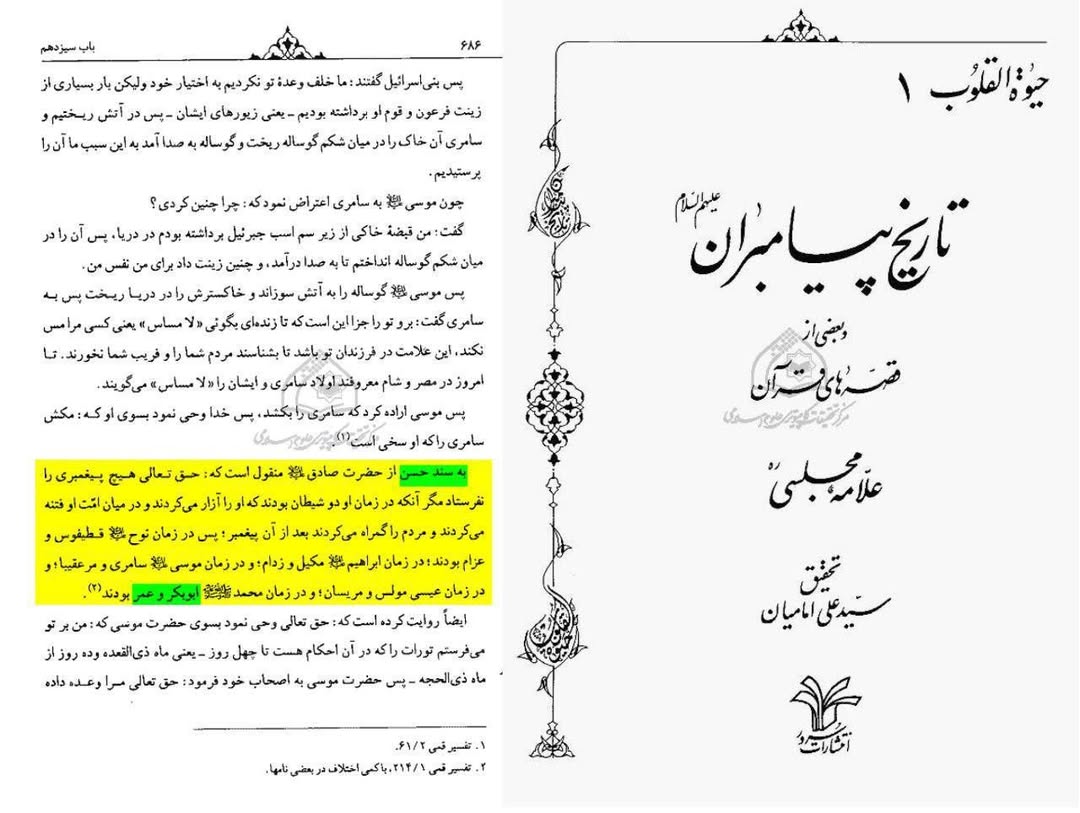 باب سیزدهم
۶۸۶
پس بنی‌اسرائیل گفتند: ما خلف وعدهٔ تو نکردیم به اختیار خود ولیکن بار بسیاری از
زینت فرعون و قوم او برداشته بودیم ـ یعنی زیورهای ایشان ـ پس در آتش ریختیم و
سامری آن خاک را در میان شکم گوساله ریخت و گوساله به صدا آمد به این سبب ما آن را
پرستیدیم.
چون موسی ﷺ به سامری اعتراض نمود که: چرا چنین کردی؟
گفت: من قبضهٔ خاکی از زیر سم اسب جبرئیل برداشته بودم در دریا، پس آن را در
میان شکم گوساله انداختم تا به صدا درآمد، و چنین زینت داد برای من نفس من.
پس موسی ﷺ گوساله را به آتش سوزاند و خاکسترش را در دریا ریخت پس به
سامری گفت: برو تو را جزا این است که تا زنده‌ای بگوئی «لا مساس» یعنی کسی مرا مس
نکند، این علامت در فرزندان تو باشد تا بشناسند مردم شما را و فریب شما نخورند. تا
امروز در مصر و شام معروفند اولاد سامری و ایشان را «لا مساس» می‌گویند.
پس موسی اراده کرد که سامری را بکشد، پس خدا وحی نمود بسوی او که: مکش
سامری را که او سخی است(۱).
به سند حسن از حضرت صادق ﷺ منقول است که: حق تعالی هیچ پیغمبری را
نفرستاد مگر آنکه در زمان او دو شیطان بودند که او را آزار می‌کردند و در میان امّت او فتنه
می‌کردند و مردم را گمراه می‌کردند بعد از آن پیغمبر؛ پس در زمان نوح ﷺ قطیفوس و
عزام بودند؛ در زمان ابراهیم ﷺ مکیل و زدام؛ و در زمان موسی ﷺ سامری و مرعقیبا؛ و
در زمان عیسی مولس و مریسان؛ و در زمان محمد ﷺ ابوبکر و عمر بودند(۲).
ایضاً روایت کرده است که: حق تعالی وحی نمود بسوی حضرت موسی که: من بر تو
می‌فرستم تورات را که در آن احکام هست تا چهل روز ـ یعنی ماه ذی‌القعده وده روز از
ماه ذی‌الحجه ـ پس حضرت موسی به اصحاب خود فرمود: حق تعالی مرا وعده داده
۱. تفسیر قمی ۲/۶۱.
۲. تفسیر قمی ۱/۲۱۴، با کمی اختلاف در بعضی نامها.
حیوة القلوب ۱
تاریخ پیامبران علیهم السلام
و بعضی از
قصه‌های قرآن
علّامه مجلسی ره
تحقیق
سیّد علی امامیان
انتشارات سرور